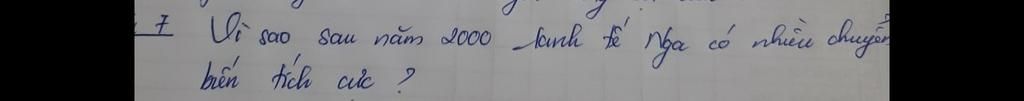 7 Vì sao sau năm 2000 kinh tế Nga có nhiều chuyển
biến tích cực ?